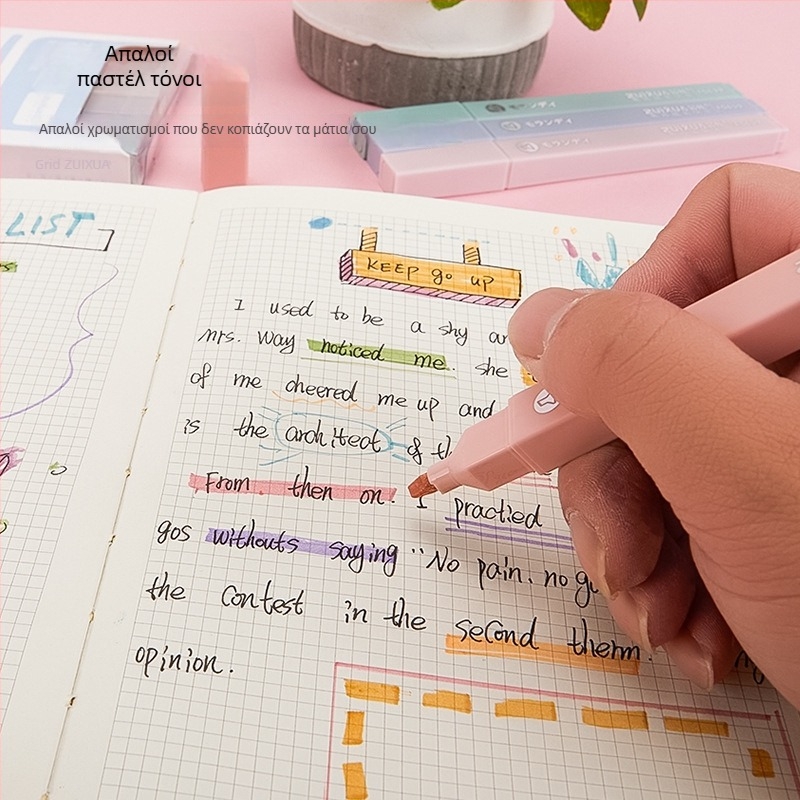 Απαλοί
παστέλ τόνοι
Απαλοί χρωματισμοί που δεν κοπιάζουν τα μάτια σου
Grid ZUIXUA
モランディ
モランディ
モランディ
LIST
KEEP go up
I used to be a shy
mrs. Way noticed me. she
of me cheered me up and
is the architeat of
From then on. I practied
gos withouts saying "No pain. no
the contest in the second therm.
opinion.